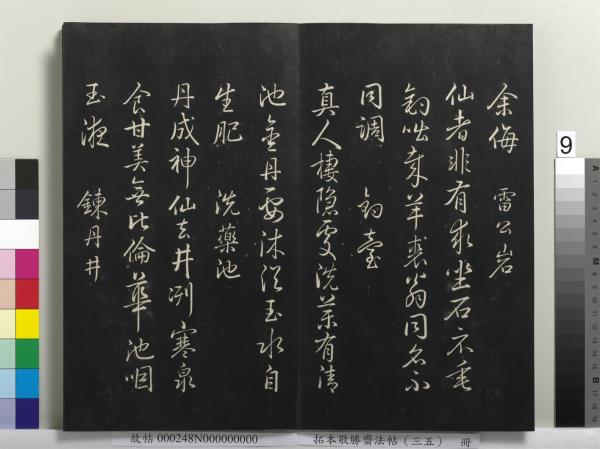 余侮　雷公岩
仙者非有求坐石不垂
釣咄哉羊裘翁同名不
同調　釣臺
真人棲隱處洗藥有清
池金丹要沐浴玉水自
生肥　洗藥池
丹成神仙去井冽寒泉
食甘美無比倫華池咽
玉液　鍊丹井
故帖 000248N000000000　拓本敬勝齋法帖（三五）　冊
9
A
M
B